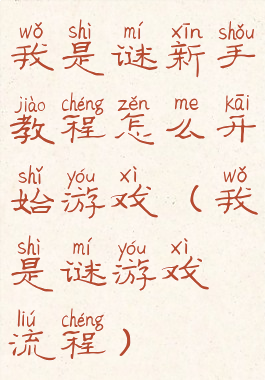 wǒ shì mí xīn shǒu
我是谜新手
jiào chéng zěn me kāi
教程怎么开
shǐ yóu xì wǒ
始游戏（我
shì mí yóu xì
是谜游戏
liú chéng
流程）